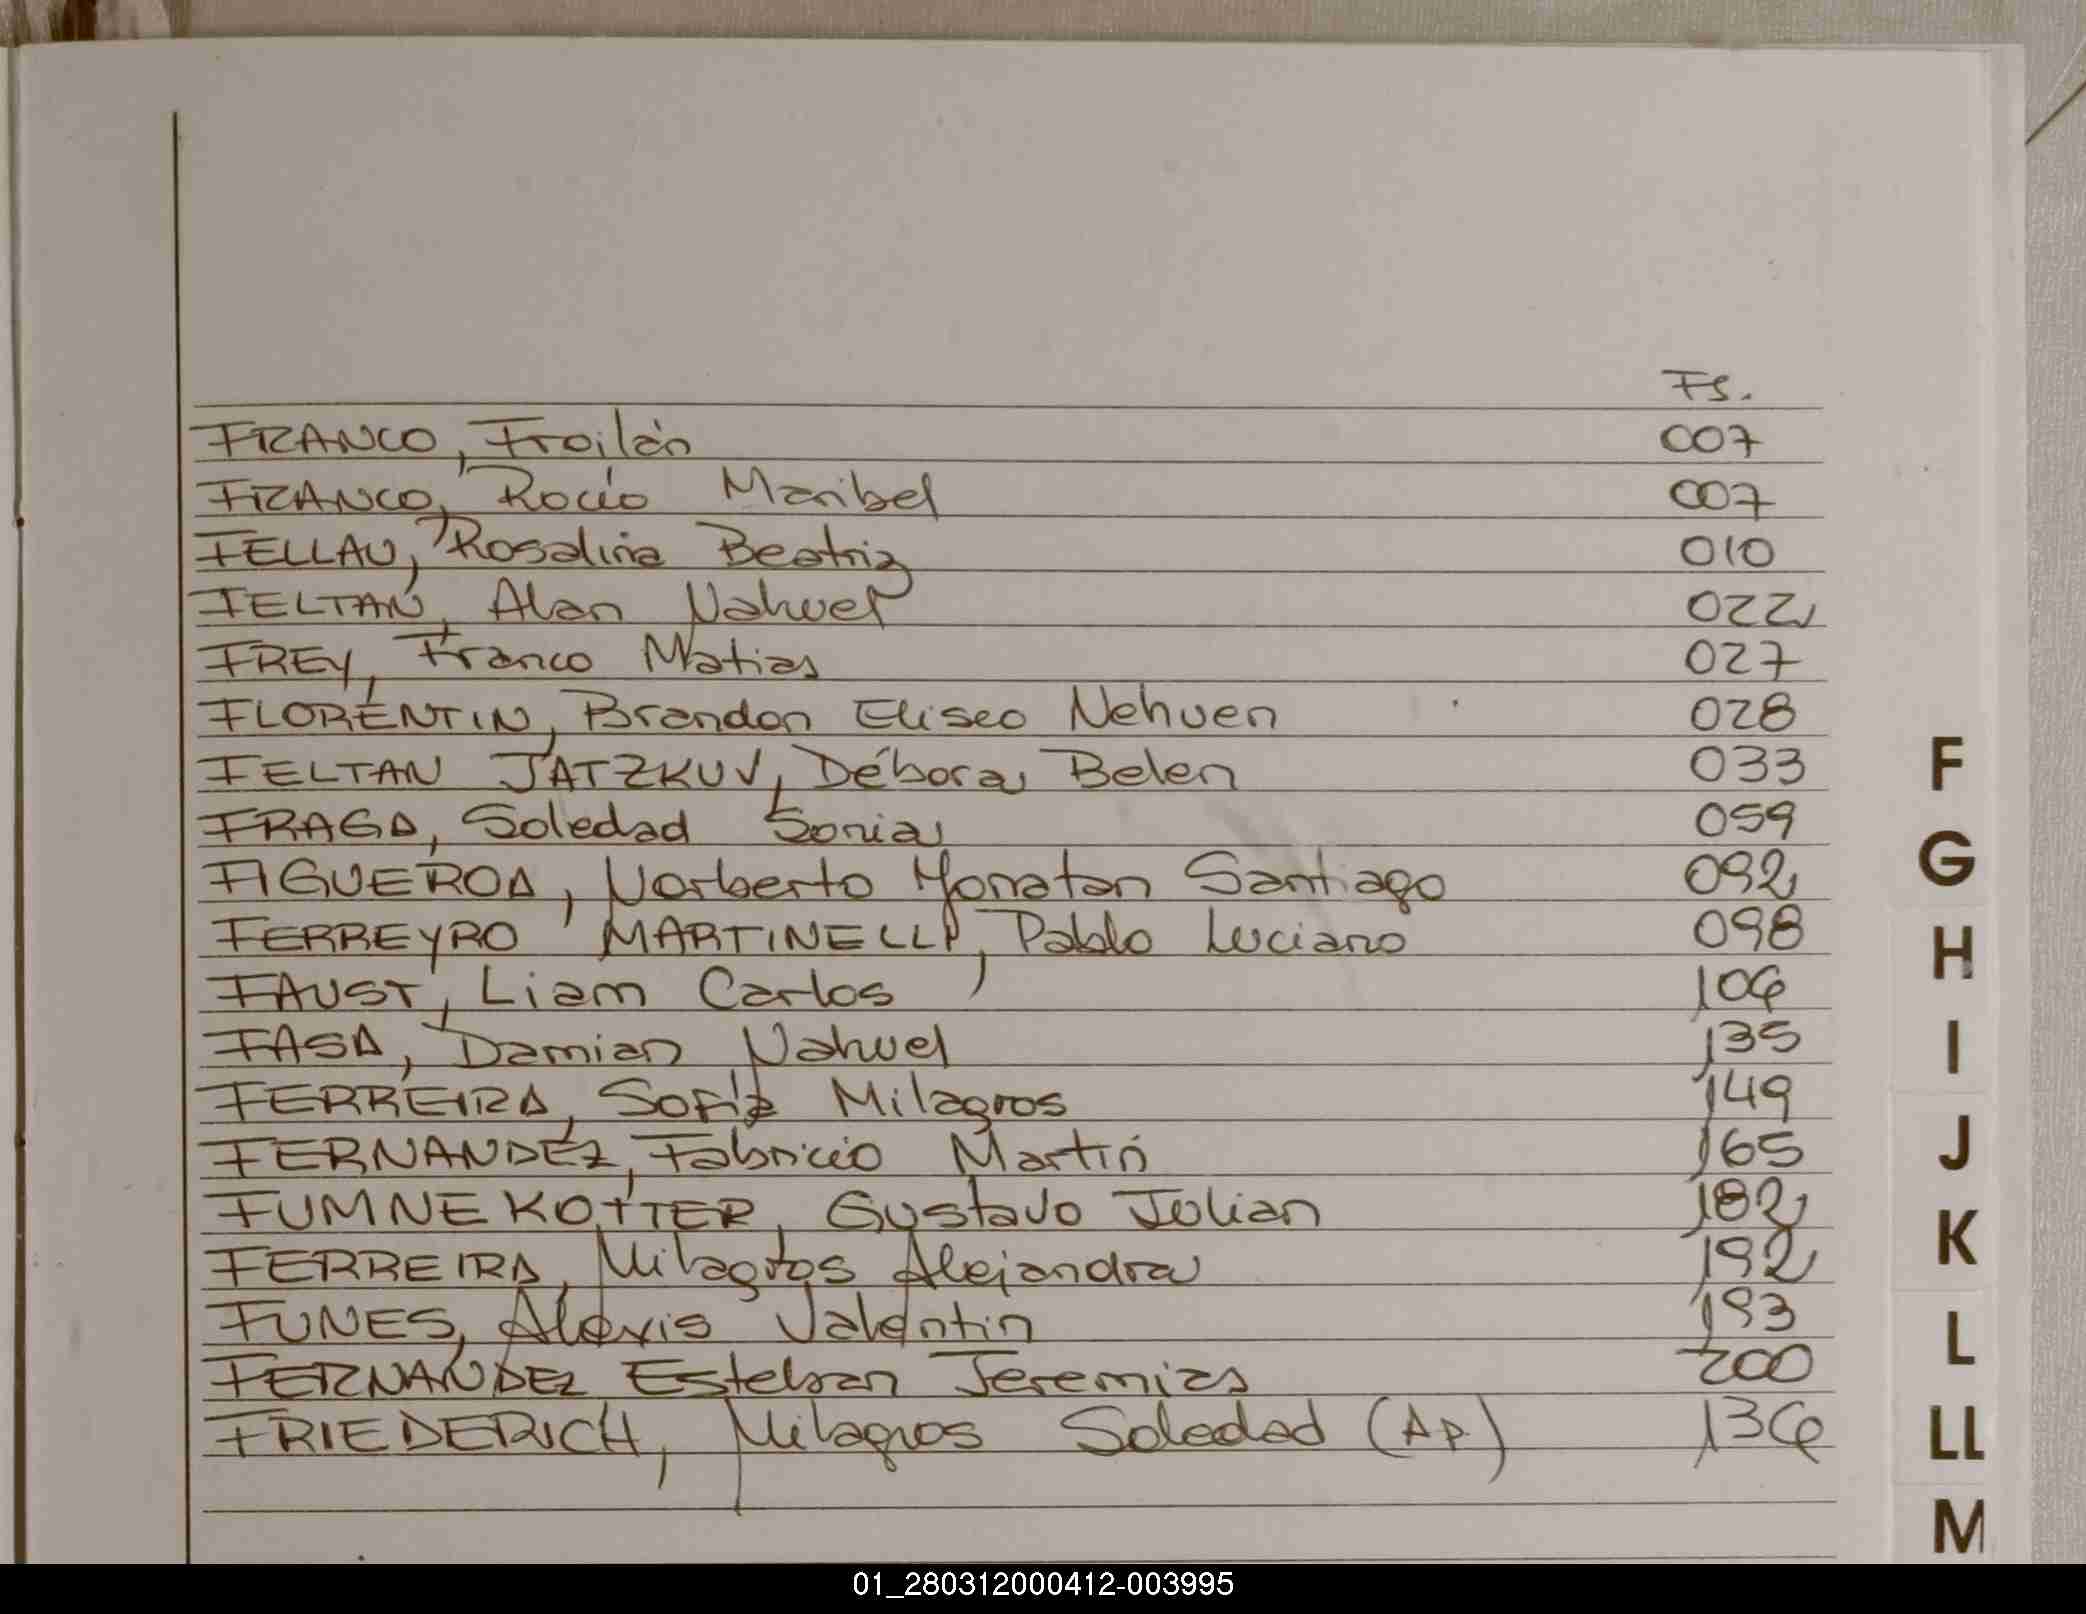 Fs.
FRANCO, Froilán 007
FRANCO, Rocío Maribel 007
FELLAU, Rosalina Beatriz 010
FELTAN, Alan Nahuel 022
FREY, Franco Matias 027
FLORENTIN, Brandon Eliseo Nehuen 028
FELTAN JATZKUV, Débora Belen 033
FRAGA, Soledad Sonia 059
FIGUEROA, Norberto Yonatan Santiago 092
FERREYRO MARTINELLI, Pablo Luciano 098
FAUST, Liam Carlos 106
FASA, Damian Nahuel 135
FERREIRA, Sofía Milagros 149
FERNANDEZ, Fabricio Martín 165
FUMNEKOTTER, Gustavo Julian 182
FERREIRA, Milagros Alejandra 192
FUNES, Alexis Valentin 193
FERNANDEZ Esteban Jeremias 200
FRIEDERICH, Milagros Soledad (AP) 136
F
G
H
I
J
K
L
LL
M
01_280312000412-003995